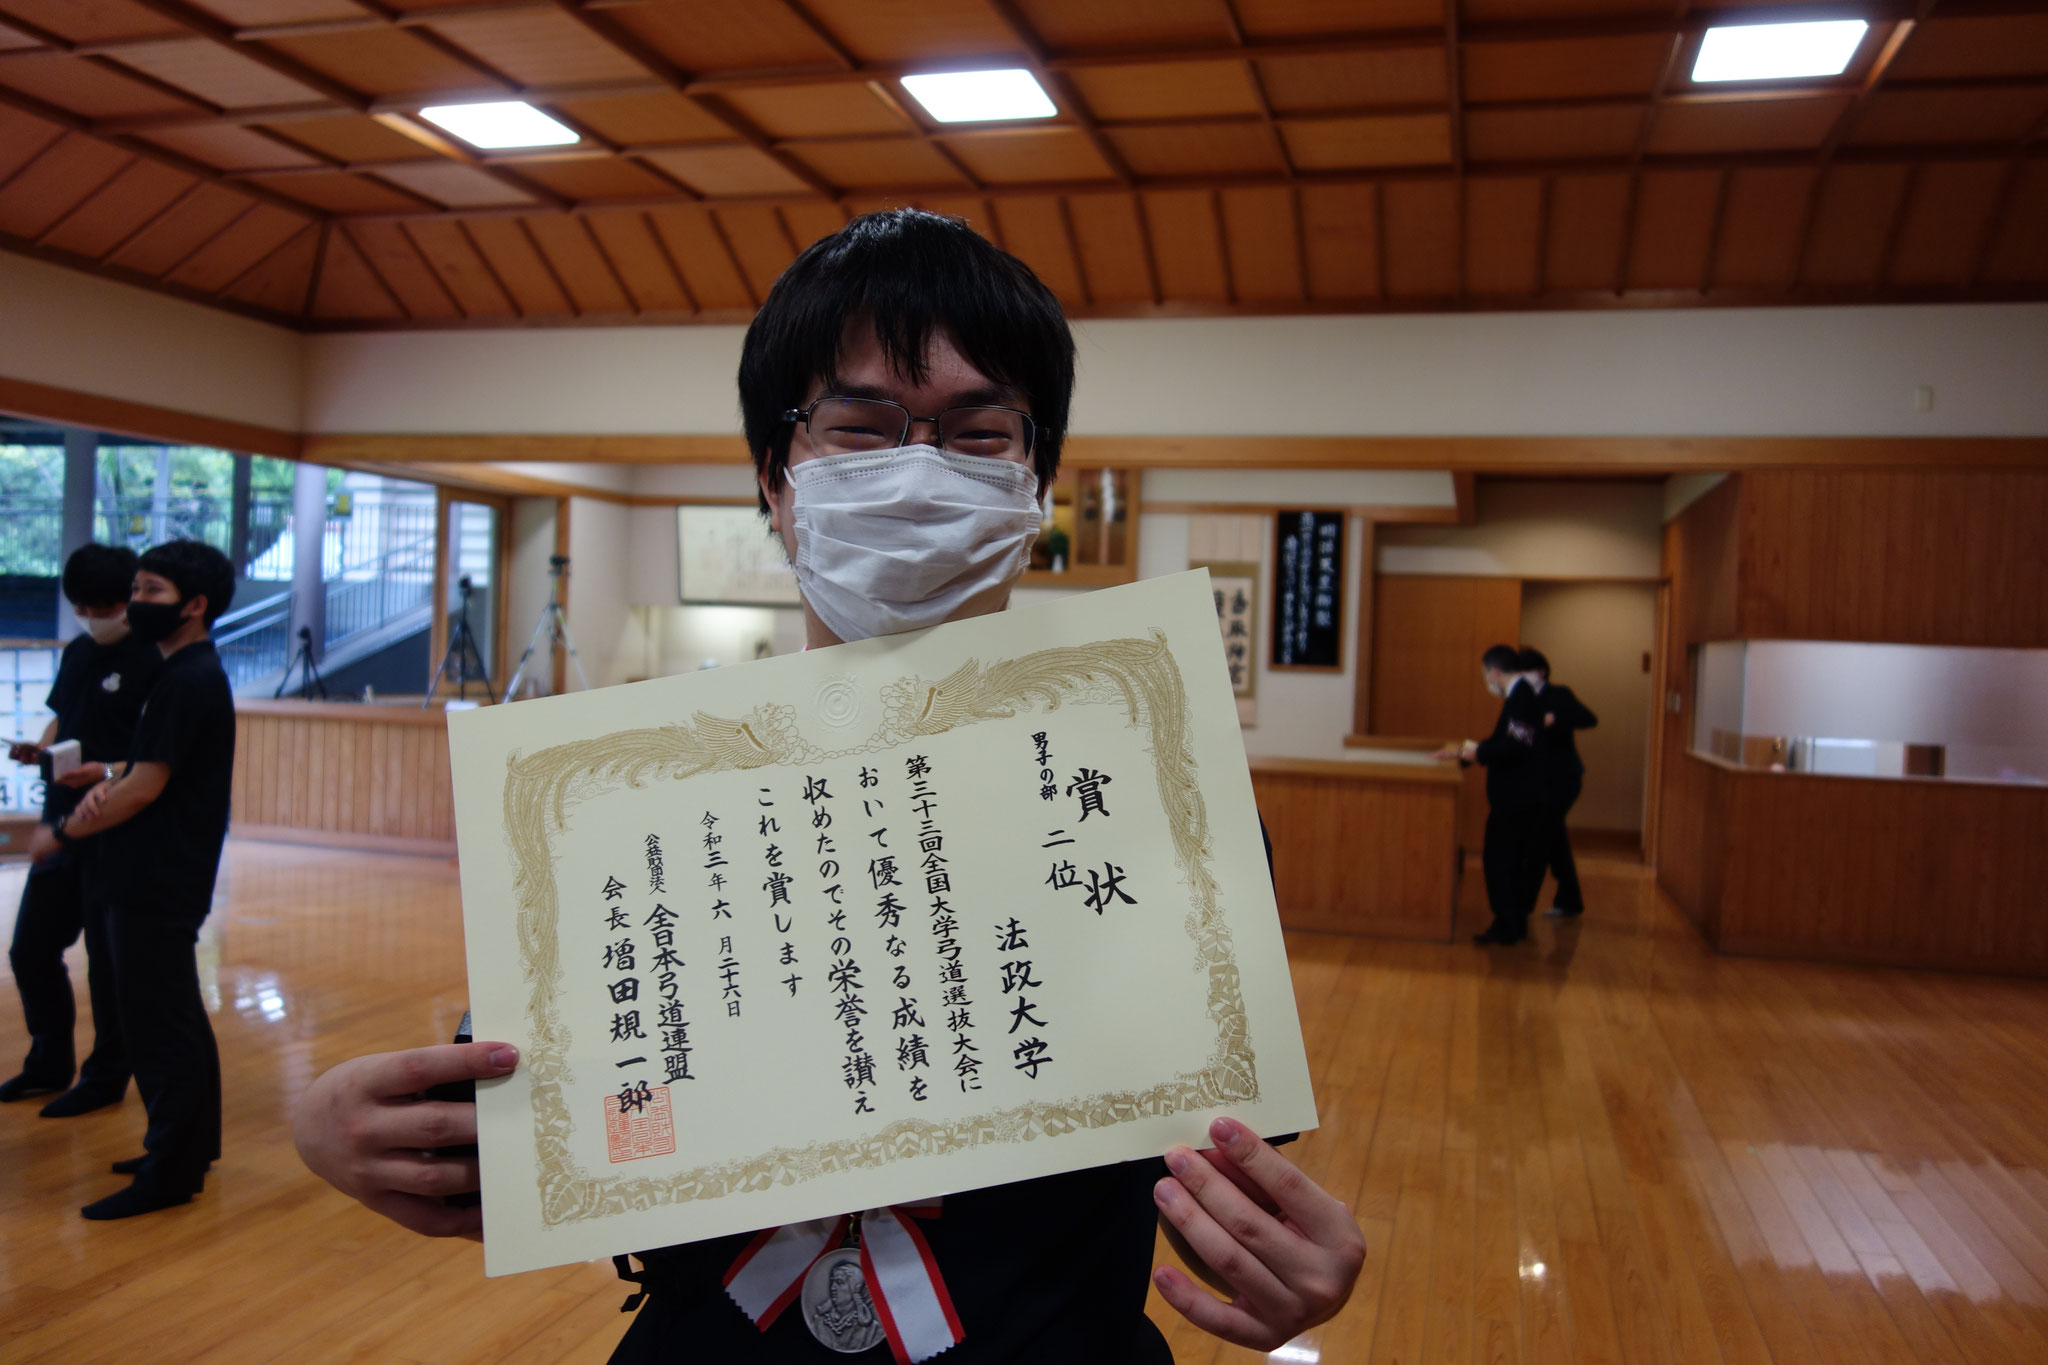 賞状
男子の部 二位
法政大学
第三十三回全国大学弓道選抜大会に
おいて優秀なる成績を
収めたのでその栄誉を讃え
これを賞します
令和三年六月二十六日
公益財団法人 全日本弓道連盟
会長 増田規一郎
43